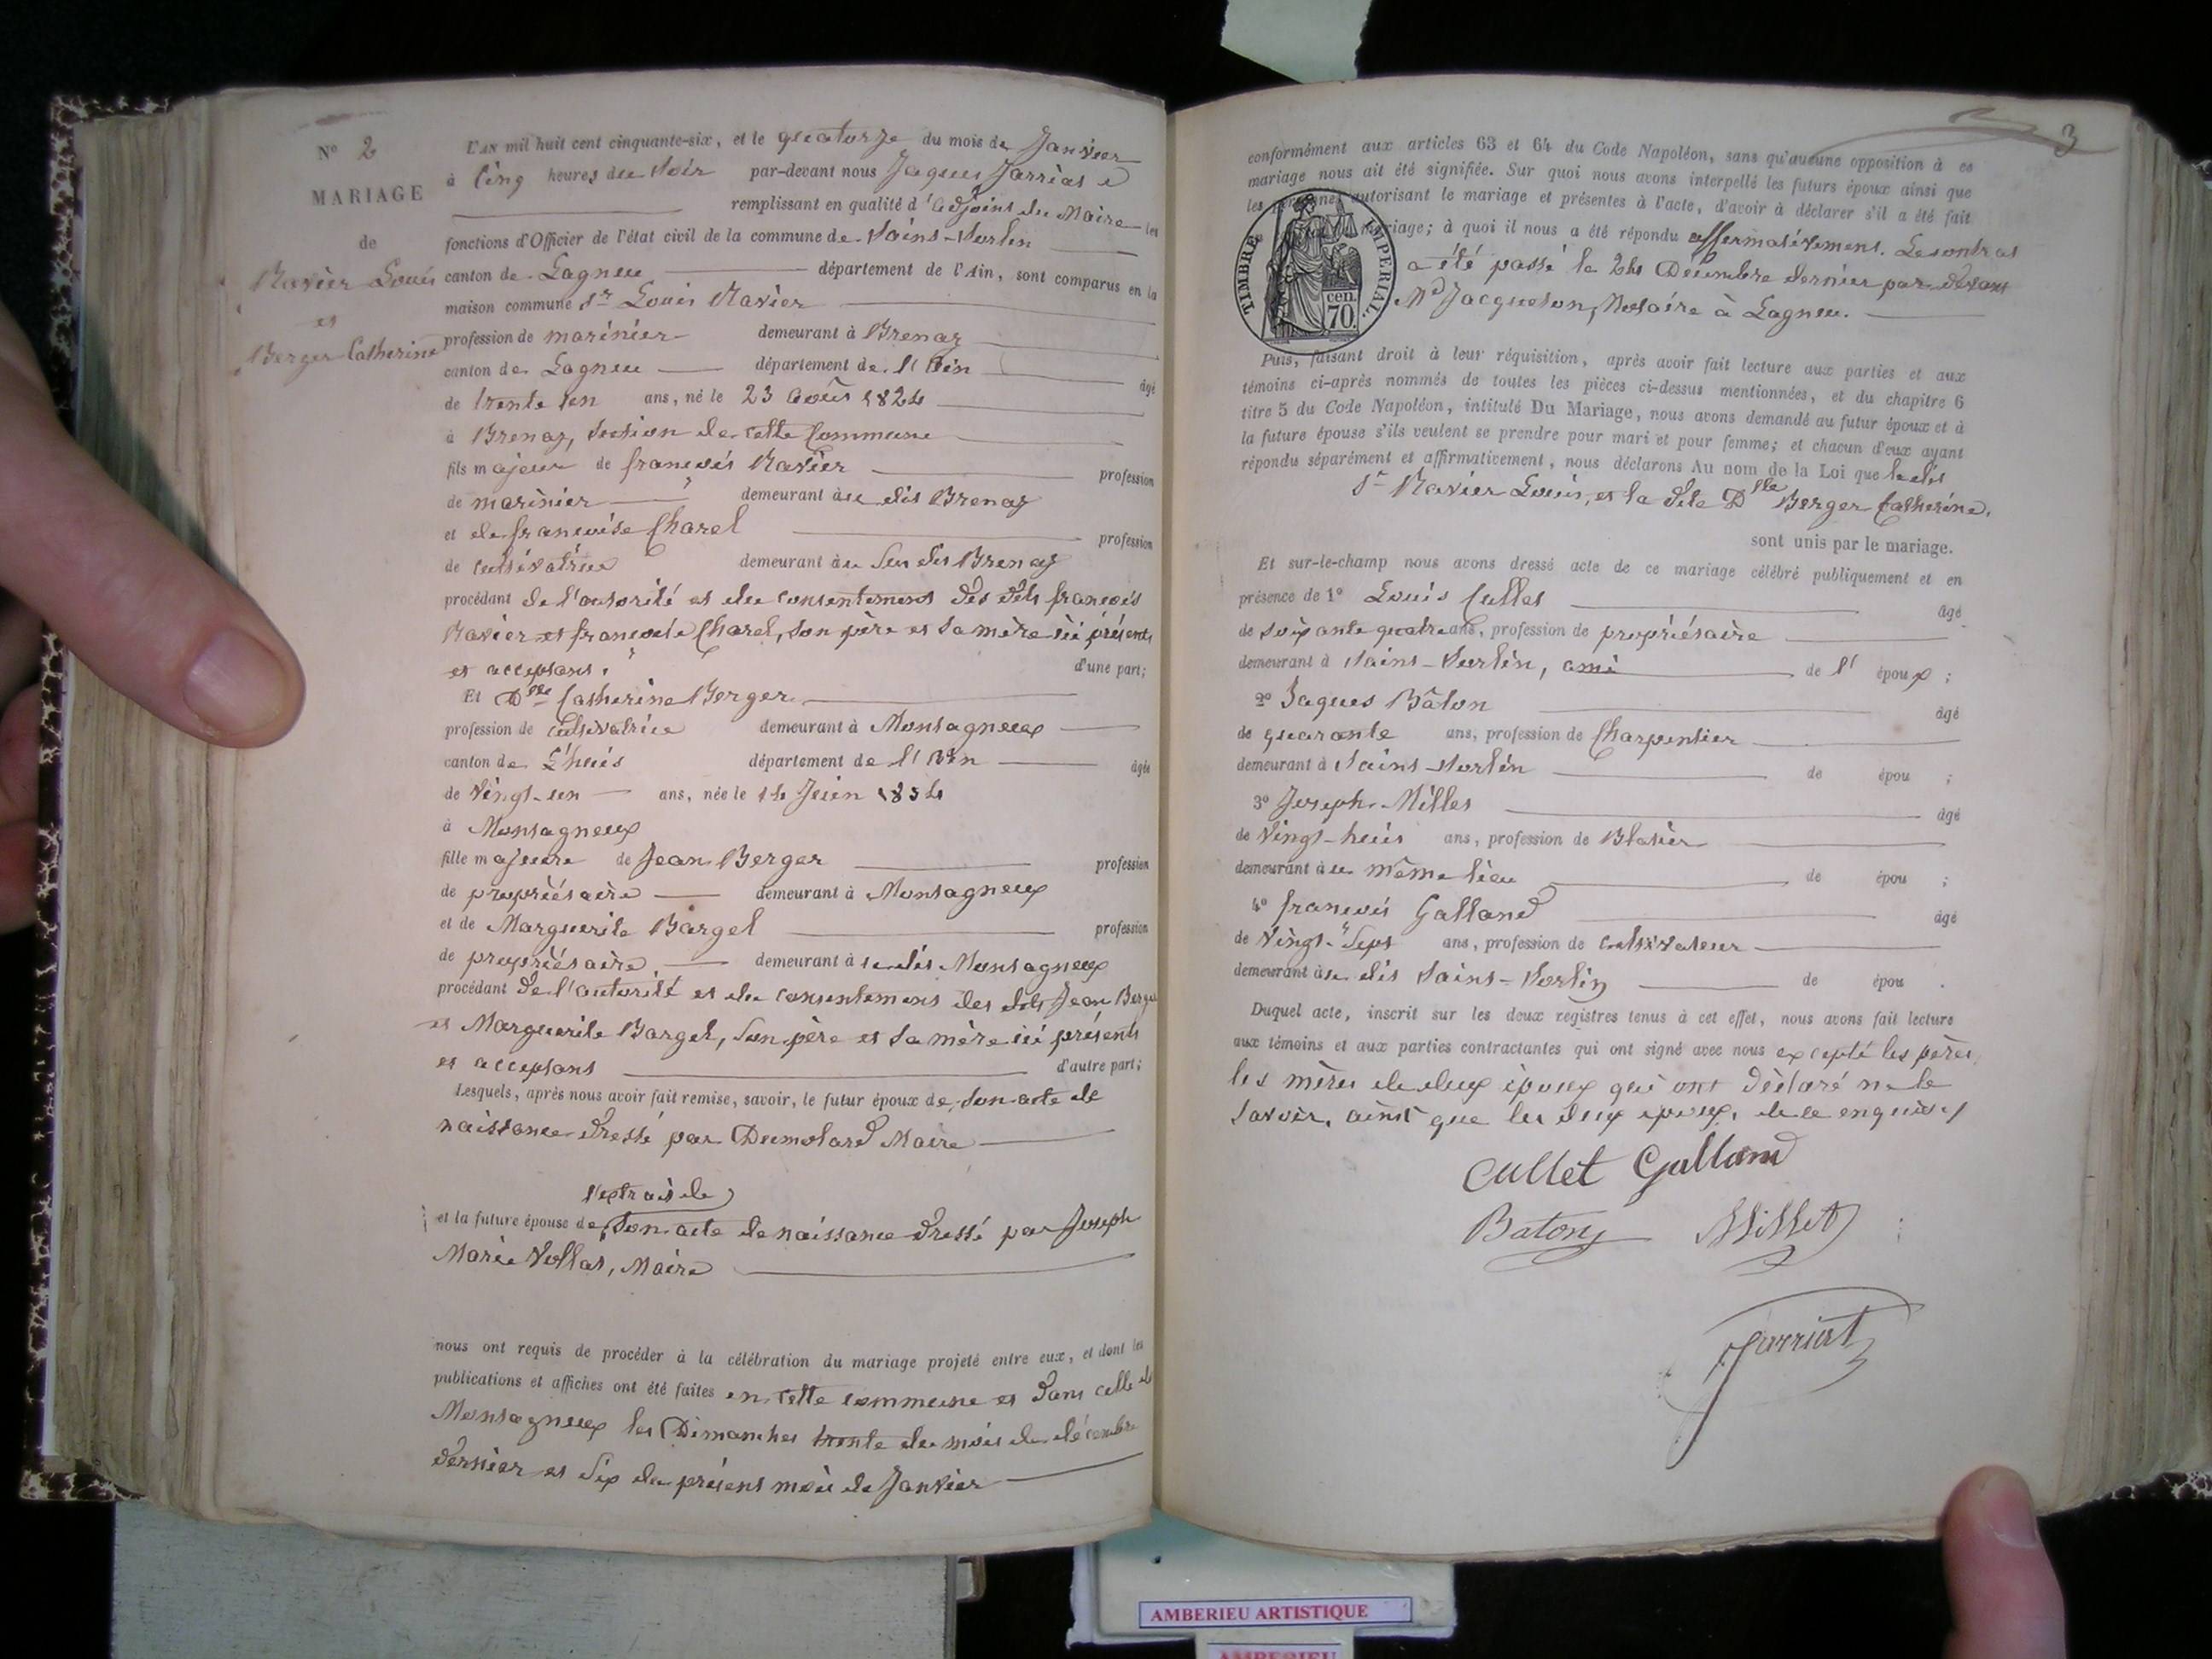 N° 2
MARIAGE
de
Ravier Louis
et
Berger Catherine
L'AN mil huit cent cinquante-six, et le quatorze du mois de Janvier
à Cinq heures du Soir par-devant nous Jaques Jarriat
remplissant en qualité d'adjoint du Maire les
fonctions d'Officier de l'état civil de la commune de Saint-Sorlin
canton de Lagnieu département de l'Ain, sont comparus en la
maison commune Sr Louis Ravier
profession de marinier demeurant à Brenaz
canton de Lagnieu département de l'Ain âgé
de trente un ans, né le 23 août 1824
à Brenaz, Section de cette Commune
fils majeur de françois Ravier profession
de marinier demeurant au dit Brenaz
et de françoise Charel profession
de cultivatrice demeurant au Sus dit Brenaz
procédant de l'autorité et du consentement des dits françois
Ravier et françoise Charel, son père et sa mère ici présents
et acceptans. d'une part;
Et Dlle Catherine Berger
profession de cultivatrice demeurant à Montagneux
canton de L'huis département de l'Ain âgée
de Vingt-un ans, née le 14 Juin 1834
à Montagneux
fille majeure de Jean Berger profession
de propriétaire demeurant à Montagneux
et de Marguerite Bargel profession
de propriétaire demeurant à sudit Montagneux
procédant de l'autorité et du consentement des dits Jean Berger
et Marguerite Bargel, Son père et Sa mère ici présents
et acceptans d'autre part;
Lesquels, après nous avoir fait remise, savoir, le futur époux de Son acte de
naissance dressé par Dumolard Maire
l'extrait de
et la future épouse de Son acte de naissance dressé par Joseph
Marie Vollat, Maire
nous ont requis de procéder à la célébration du mariage projeté entre eux, et dont les
publications et affiches ont été faites en cette commune et dans celle de
Montagneux les Dimanches trente du mois de décembre
dernier et Six du présent mois de Janvier
3
conformément aux articles 63 et 64 du Code Napoléon, sans qu'aucune opposition à ce
mariage nous ait été signifiée. Sur quoi nous avons interpellé les futurs époux ainsi que
les personnes autorisant le mariage et présentes à l'acte, d'avoir à déclarer s'il a été fait
mariage; à quoi il nous a été répondu affirmativement. Le contrat
a été passé le 24 Décembre dernier par devant
Md Jacqueton, Notaire à Lagnieu.
TIMBRE IMPERIAL.
70 cen.
Puis, faisant droit à leur réquisition, après avoir fait lecture aux parties et aux
témoins ci-après nommés de toutes les pièces ci-dessus mentionnées, et du chapitre 6
titre 5 du Code Napoléon, intitulé Du Mariage, nous avons demandé au futur époux et à
la future épouse s'ils veulent se prendre pour mari et pour femme; et chacun d'eux ayant
répondu séparément et affirmativement, nous déclarons Au nom de la Loi que le dit
Sr Ravier Louis, et la dite Dlle Berger Catherine,
sont unis par le mariage.
Et sur-le-champ nous avons dressé acte de ce mariage célébré publiquement et en
présence de 1° Louis Cullet âgé
de soixante quatre ans, profession de propriétaire
demeurant à Saint-Sorlin, ami de l' époux ;
2° Jaques Bâton âgé
de quarante ans, profession de Charpentier
demeurant à Saint-Sorlin de épou ;
3° Joseph Millet âgé
de Vingt-huit ans, profession de Blatier
demeurant au même lieu de épou ;
4° françois Galland âgé
de Vingt-Sept ans, profession de cultivateur
demeurant au dit Saint-Sorlin de épou .
Duquel acte, inscrit sur les deux registres tenus à cet effet, nous avons fait lecture
aux témoins et aux parties contractantes qui ont signé avec nous excepté les pères,
les mères de deux époux qui ont déclaré ne le
savoir, ainsi que les deux époux, de ce enquis
Cullet Galland
Baton Millet
Jarriat
AMBERIEU ARTISTIQUE
AMBERIEU